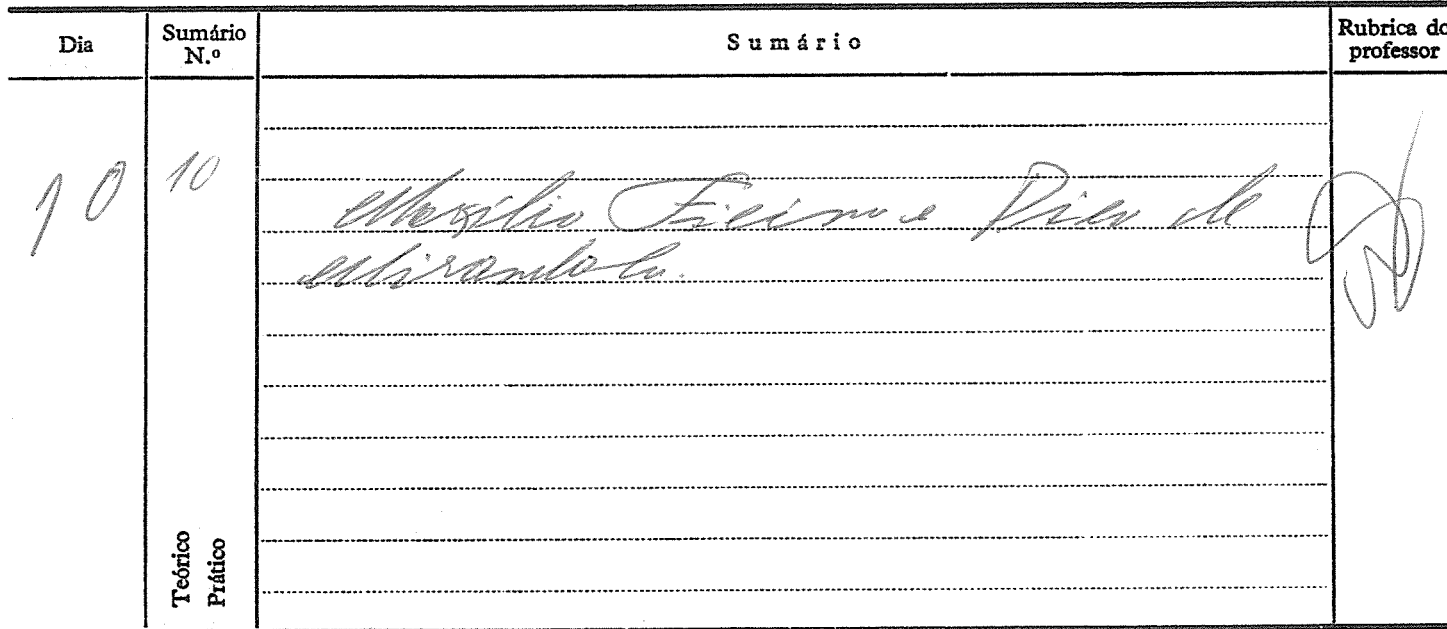 Dia
Sumário N.º
Sumário
Rubrica do professor
10
10
Marsílio Ficino e Pico de
Mirandola.
Teórico
Prático